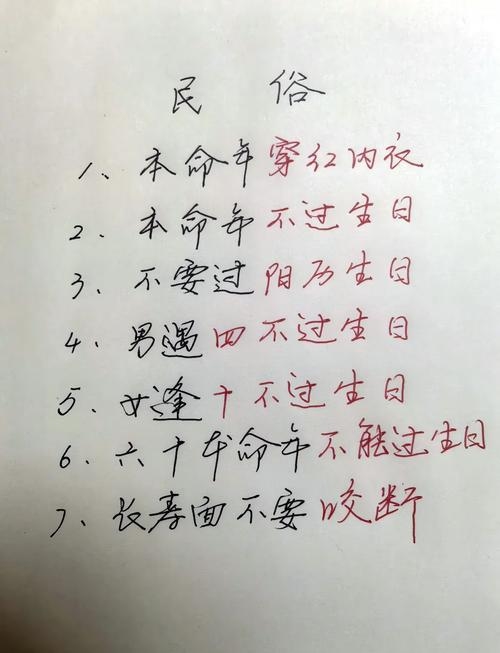 民俗
1、本命年穿红内衣
2.本命年不过生日
3.不要过阳历生日
4.男遇四不过生日
5.女逢十不过生日
6.六十本命年不能过生日
7、长寿面不要咬断